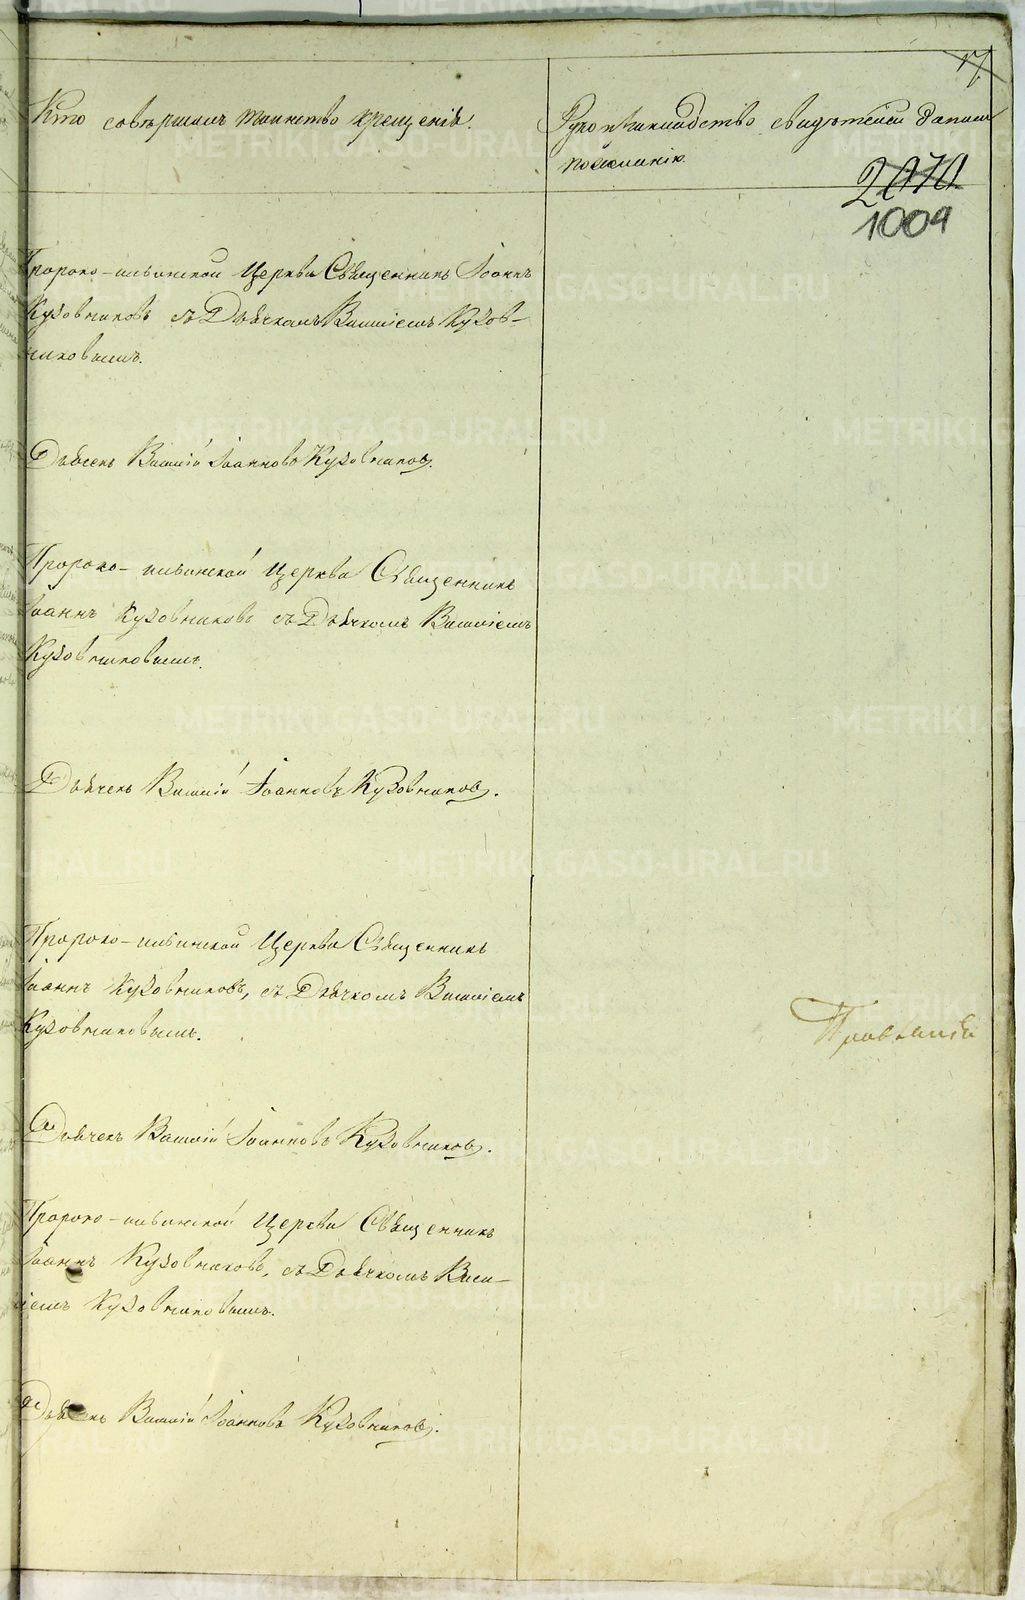 17
Кто совершалъ таинство крещенія.
Рукоприкладство свидѣтелей записи
по желанію
2070
1009
Пророко-ильинской Церкви Священникъ Іоаннъ
Кузовниковъ съ Дьячкомъ Василіемъ Кузов-
никовымъ.
Дьячекъ Василій Іоанновъ Кузовниковъ.
Пророко-ильинской Церкви Священникъ
Іоаннъ Кузовниковъ съ Дьячкомъ Василіемъ
Кузовниковымъ.
Дьячекъ Василій Іоанновъ Кузовниковъ.
Пророко-ильинской Церкви Священникъ
Іоаннъ Кузовниковъ, съ Дьячкомъ Василіемъ
Кузовниковымъ.
Дьячекъ Василій Іоанновъ Кузовниковъ.
Пророко-ильинской Церкви Священникъ
Іоаннъ Кузовниковъ, съ Дьячкомъ Васи-
ліемъ Кузовниковымъ.
Дьячекъ Василій Іоанновъ Кузовниковъ.
METRIKI.GASO-URAL.RU